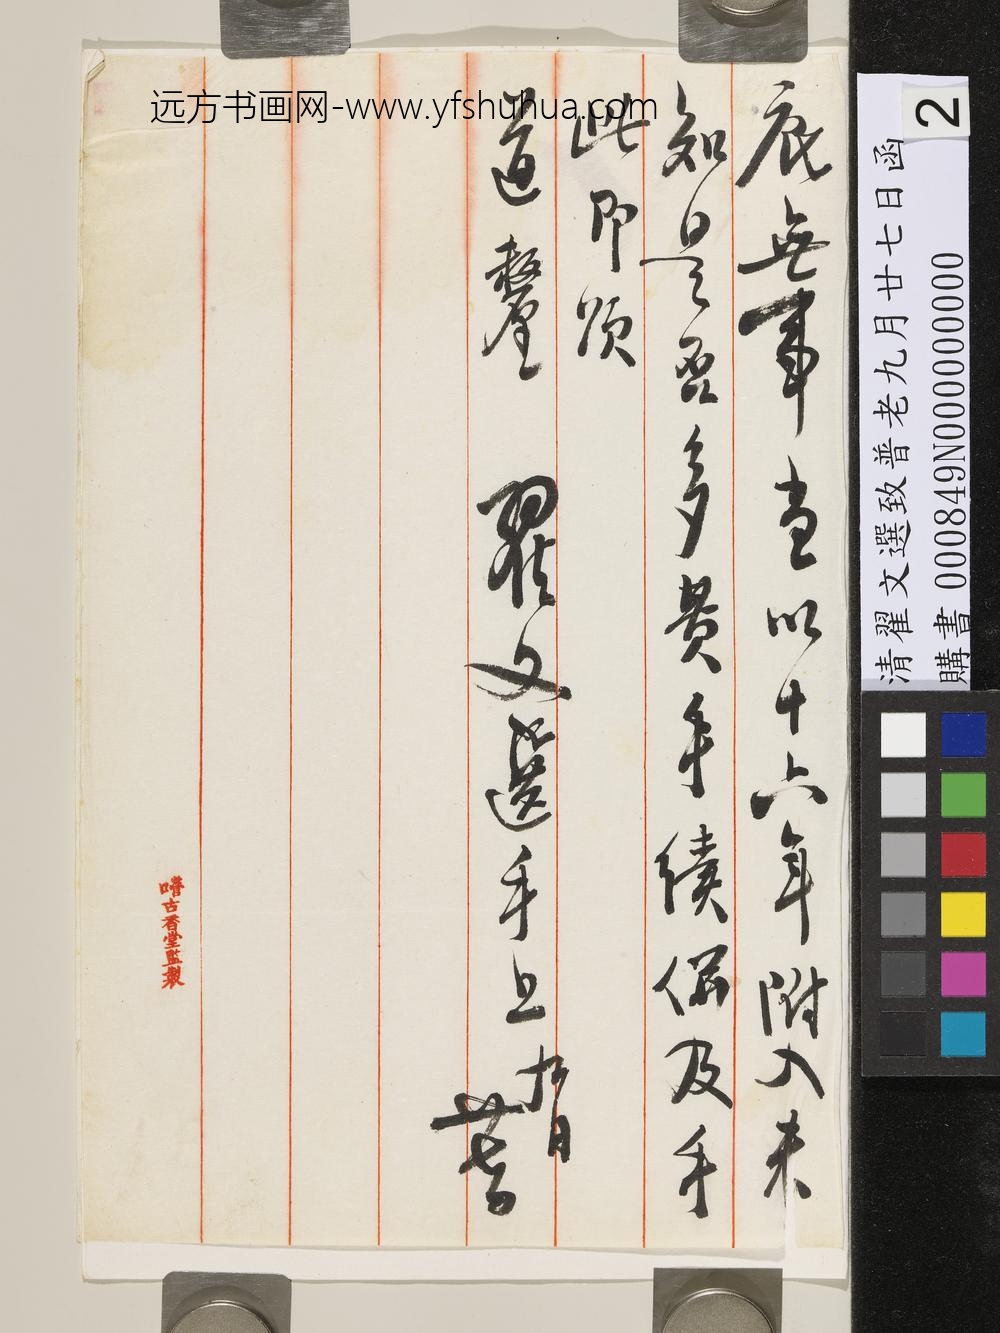 远方书画网-www.yfshuhua.com
底無事当以十六年附入未
知是否多费手续俱及手
此即颂
道釐 翟文選手上 九月
廿七日
嗜古香堂監製
清翟文選致普老九月廿七日函
購書 000849N000000000
2